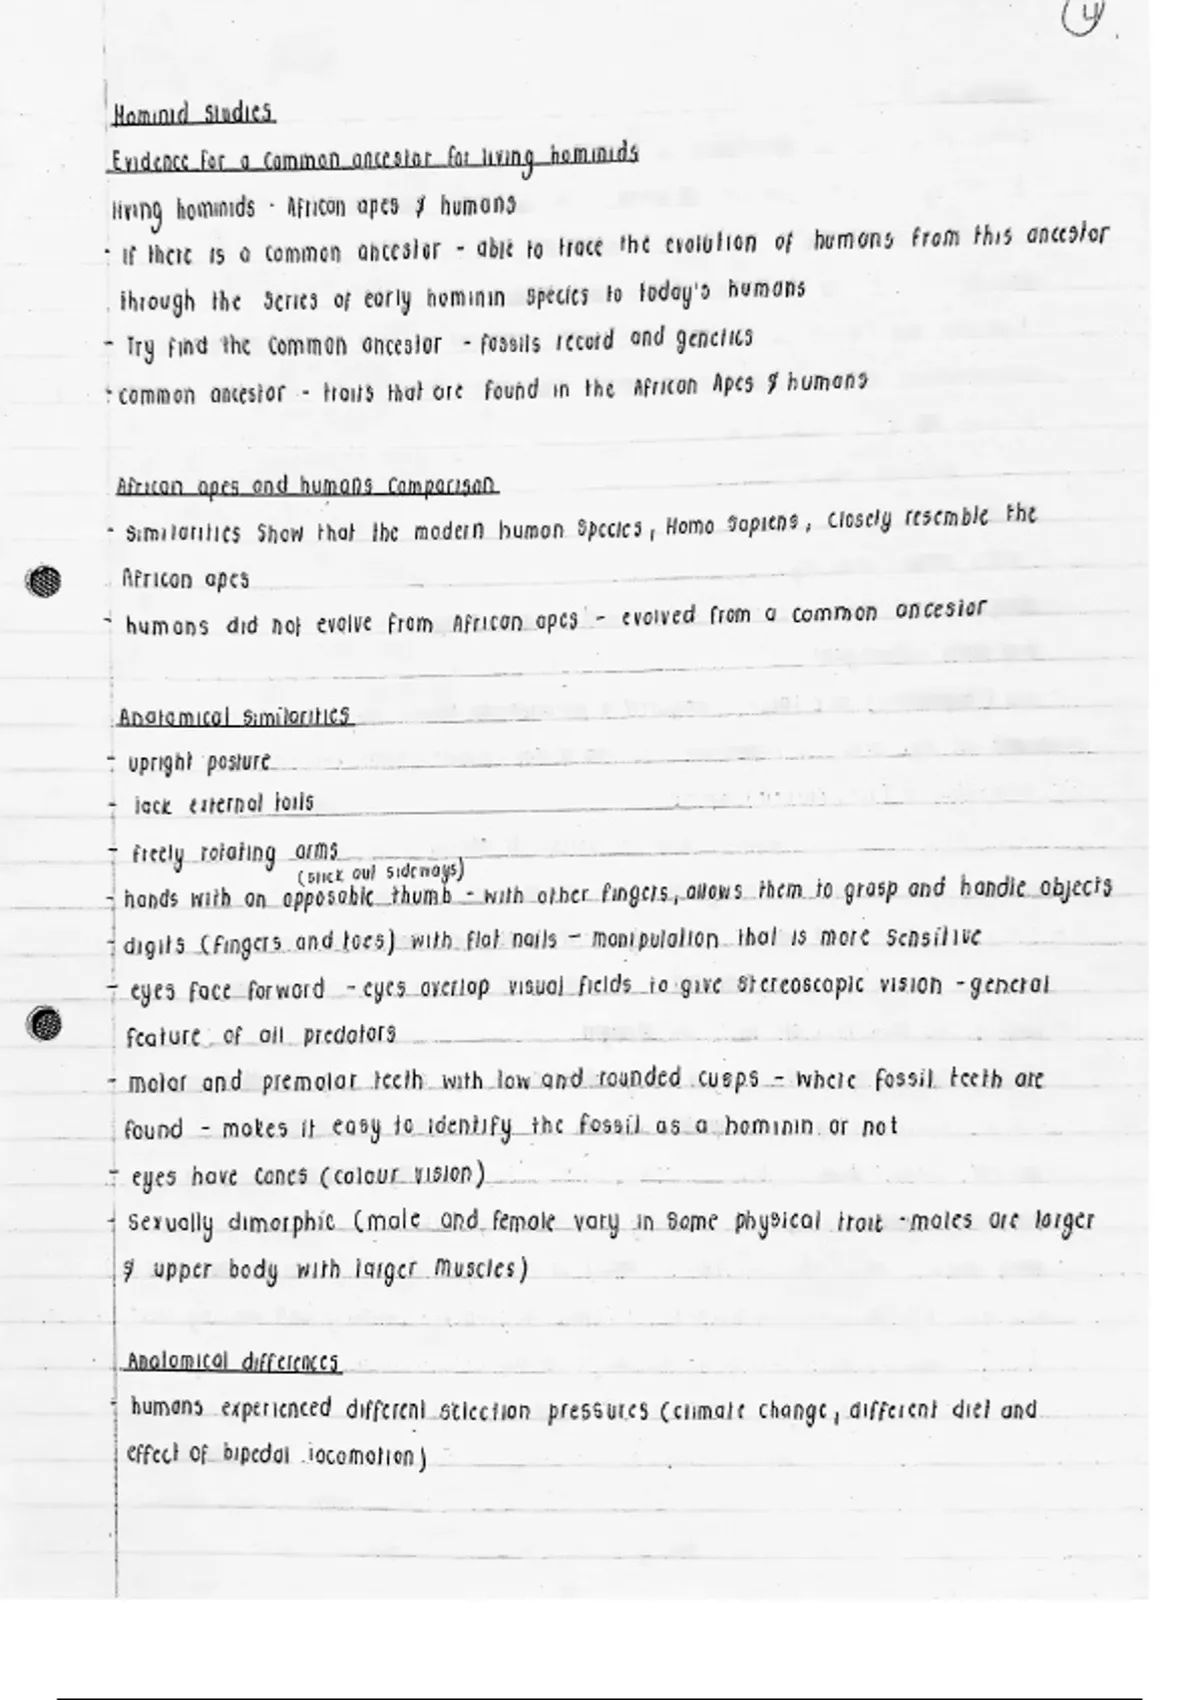 4
Hominid Studies
Evidence for a common ancestor for living hominids
living hominids - African apes & humans
- If there is a common ancestor - able to trace the evolution of humans from this ancestor
through the series of early hominin species to today's humans
- Try find the common ancestor - fossils record and genetics
- common ancestor - traits that are found in the African Apes & humans
African apes and humans comparison
- Similarities show that the modern human species, Homo sapiens, closely resemble the
African apes
- humans did not evolve from African apes - evolved from a common ancestor
Anatomical similarities
- upright posture
- lack external tails
- freely rotating arms
(stick out sideways)
- hands with an opposable thumb - with other fingers, allows them to grasp and handle objects
- digits (fingers and toes) with flat nails - manipulation that is more sensitive
- eyes face forward - eyes overlap visual fields to give stereoscopic vision - general
feature of all predators
- molar and premolar teeth with low and rounded cusps - where fossil teeth are
found - makes it easy to identify the fossil as a hominin or not
- eyes have cones (colour vision)
- Sexually dimorphic (male and female vary in some physical trait - males are larger
& upper body with larger muscles)
Anatomical differences
- humans experienced different selection pressures (climate change, different diet and
effect of bipedal locomotion)